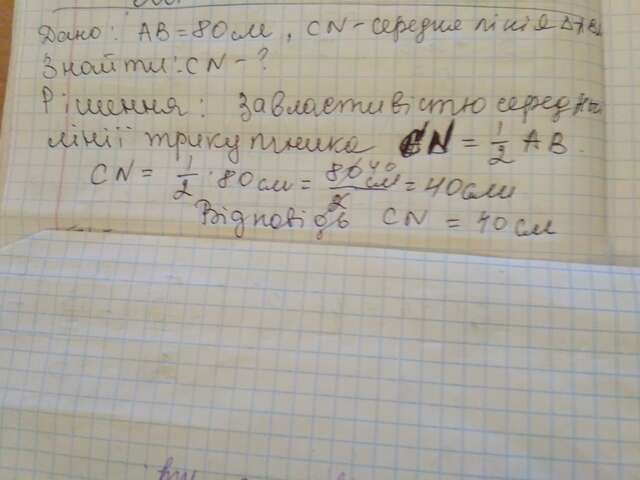 Дано: AB = 80 см, CN - середня лінія
Знайти: CN - ?
Рішення: За властивістю середньої
лінії трикутника CN = 1/2 AB.
CN = 1/2 · 80 см = 80 40 см/2 = 40 см
Відповідь CN = 40 см